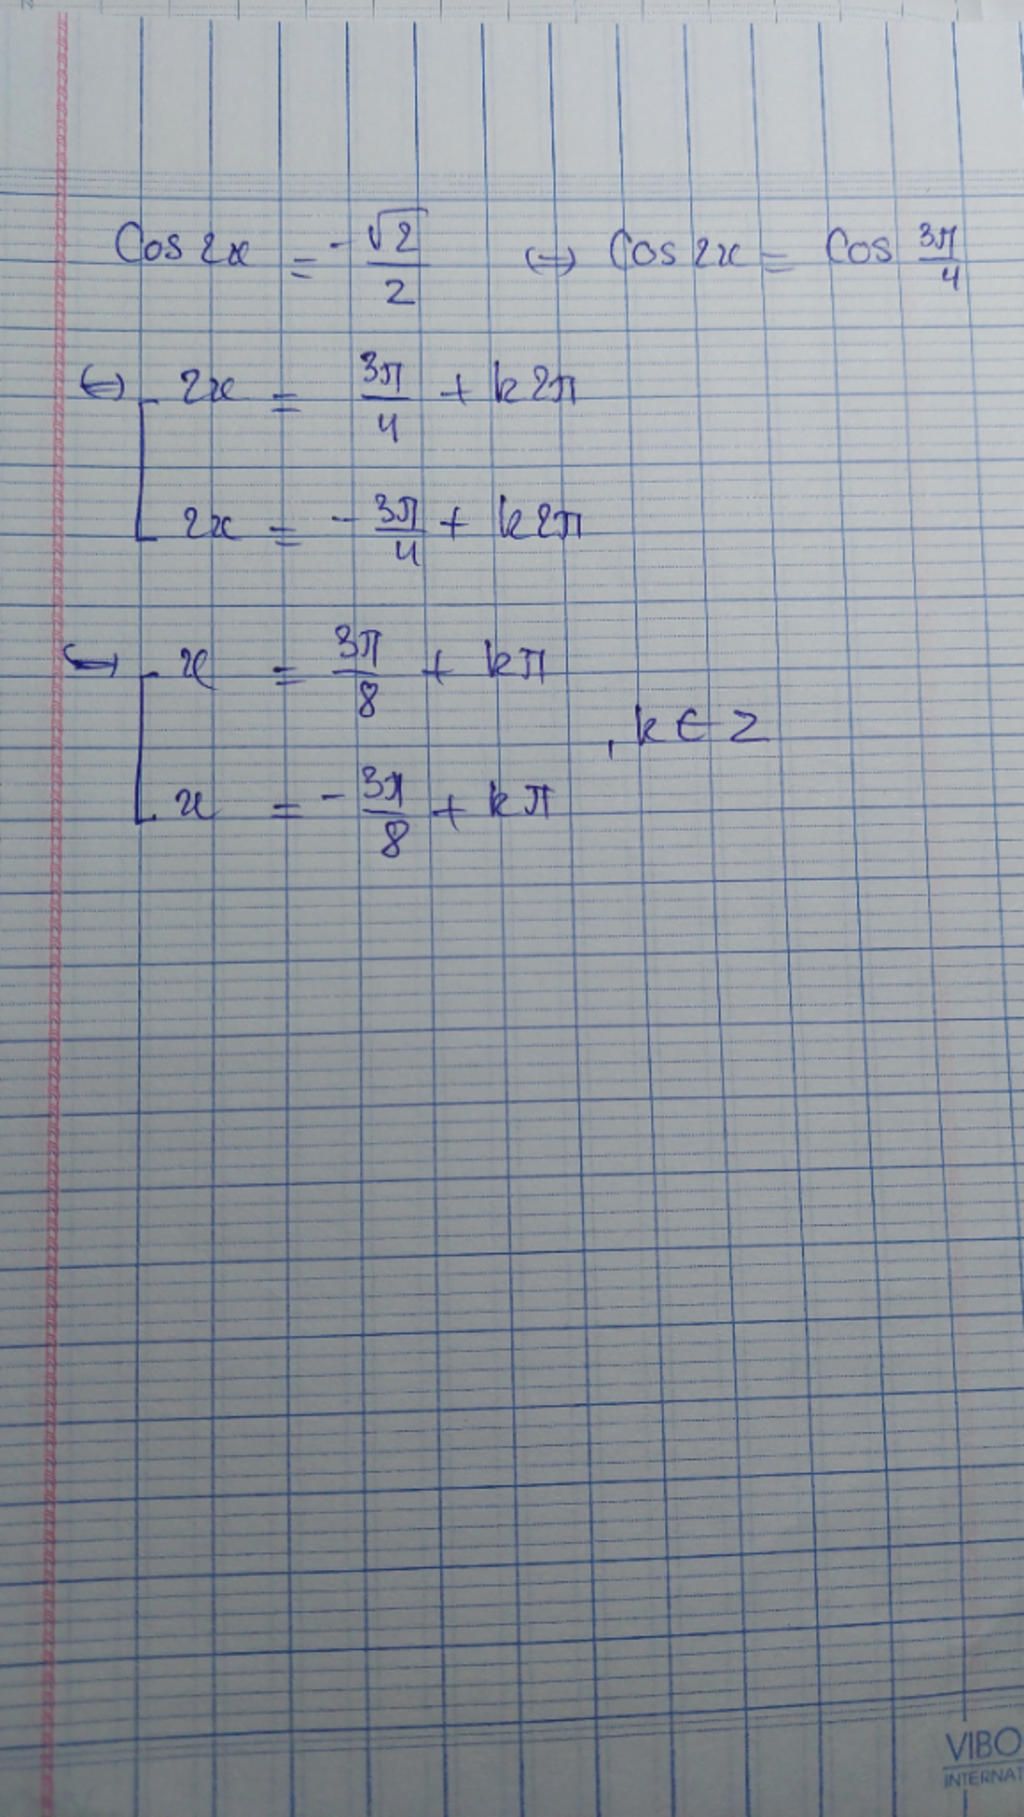 Cos 2x = -√2/2 ⇔ Cos 2x = Cos 3π/4
⇔ [ 2x = 3π/4 + k2π
2x = -3π/4 + k2π
⇔ [ x = 3π/8 + kπ
, k ∈ Z
x = -3π/8 + kπ
VIBO
INTERNAT